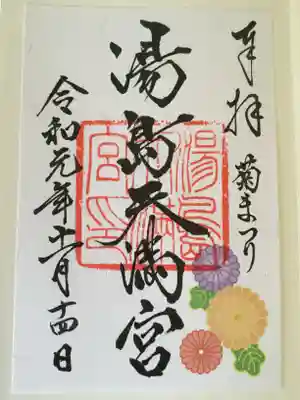 奉拝
菊まつり
湯島天満宮
令和元年十一月十四日